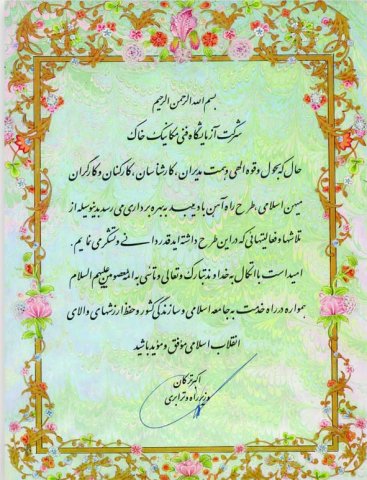 بسم الله الرحمن الرحیم
شرکت آزمایشگاه فنی مکانیک خاک
حال که بحول و قوه الهی و همت مدیران، کارشناسان، کارکنان و کارگران
میهن اسلامی، طرح راه آهن بافق میبد ببهره برداری می رسد بدینوسیله از
تلاشها و فعالیتهائی که در این طرح داشته اید قدردانی و تشکر می نمایم.
امید است با اتکال به خداوند تبارک و تعالی و تأسی به ائمه معصومین علیهم السلام
همواره در راه خدمت به جامعه اسلامی و سازندگی کشور و حفظ ارزشهای والای
انقلاب اسلامی موفق و مؤید باشید
اکبر ترکان
وزیر راه و ترابری